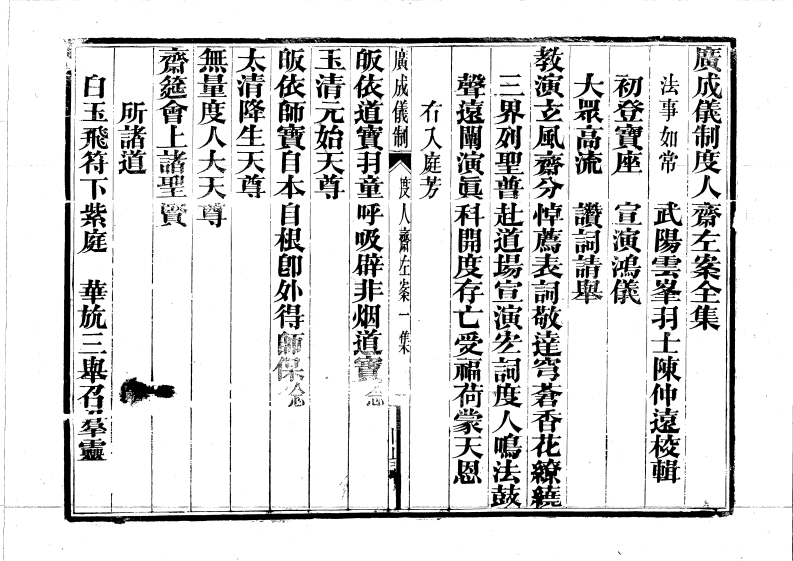 廣成儀制度人齋左案全集
武陽雲峯羽士陳仲遠校輯
法事如常
初登寶座　宣演鴻儀
大眾高流　讚詞請舉
教演玄風齋分悼薦表詞敬達穹蒼香花繚繞
三界列聖普赴道場宣演宏詞度人鳴法鼓
聲遠闡演眞科開度存亡受福荷蒙天恩
右入庭芳
廣成儀制　度人齋左案一集
皈依道寶羽童呼吸辟非烟道寶
玉清元始天尊
皈依師寶自本自根卽外得師保
太清降生天尊
無量度人大天尊
齋筵會上諸聖賢
所諸道
白玉飛符下紫庭　華旂三舉召羣靈